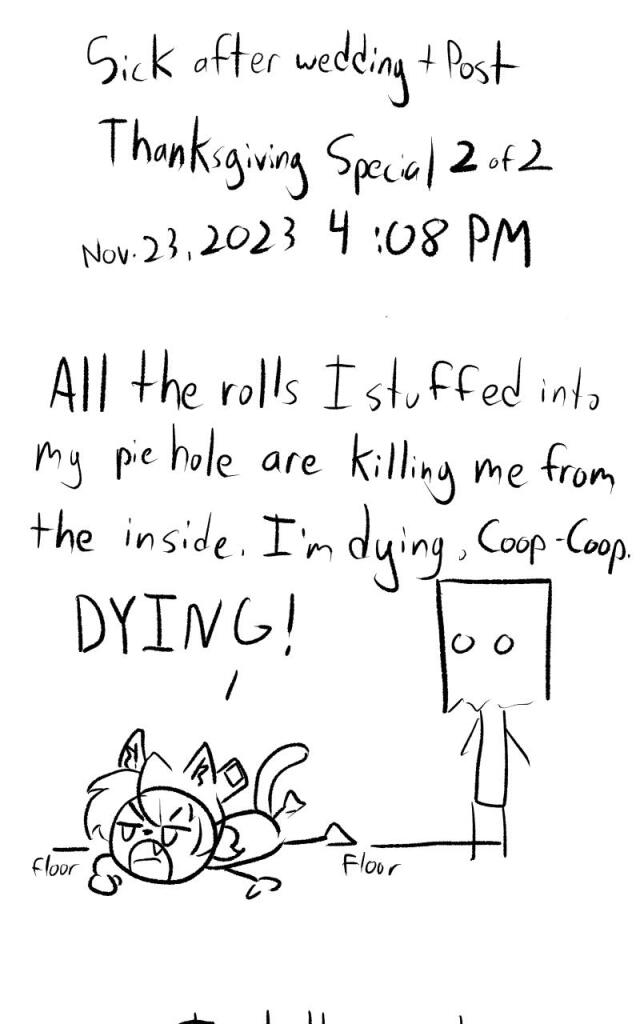 Sick after wedding + Post
Thanksgiving Special 2 of 2
Nov. 23, 2023 4:08 PM
All the rolls I stuffed into
my pie hole are killing me from
the inside. I'm dying, Coop-Coop.
DYING!
Floor
Floor